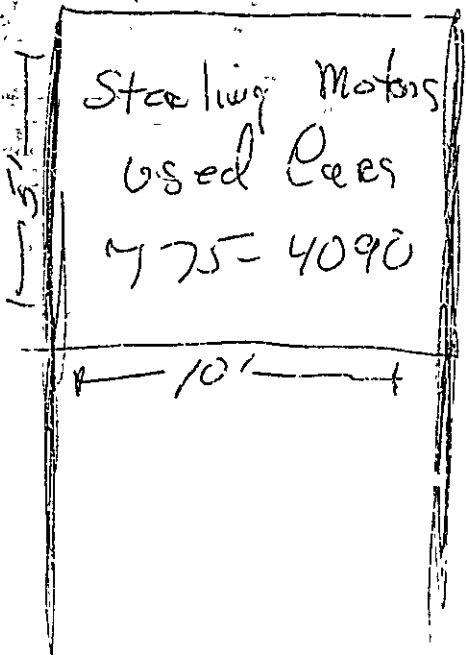 Sterling Motors
Used Cars
775-4090
5'
10'